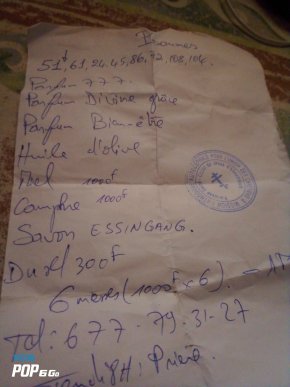 Psaumes
51, 61, 24, 45, 86, 92, 108, 104.
Parfum 777.
Parfum Divine grâce
Parfum Bien-être
Huile d'olive
Miel 1000f
Camphre 1000f
Savon ESSINGANG.
Du sel 300f
6 messes (1000f x 6).
Tel: 677.79.31-27
Prière.
POP 6 Go